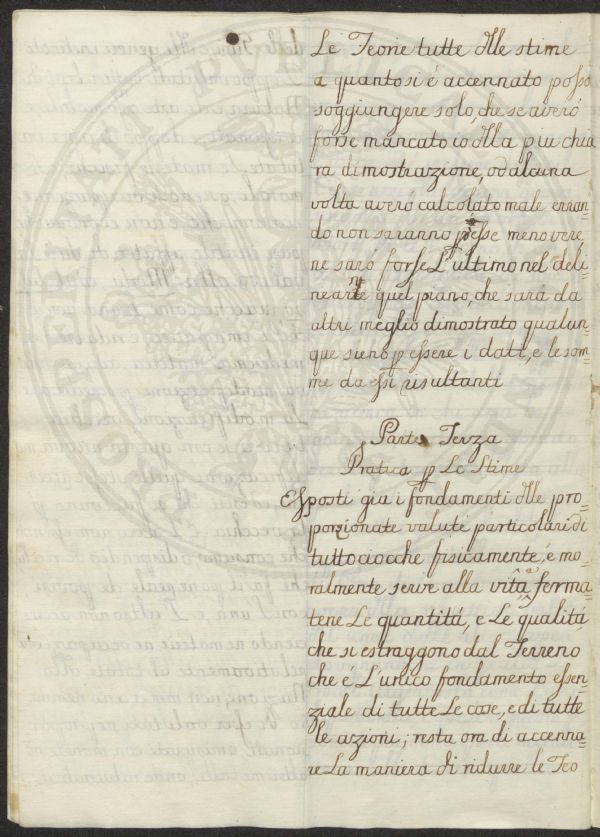 Le Teorie tutte dlle stime
a quanto si é accennato posso
soggiungere solo, che se averó
forse mancato io dlla piu chia
ra dimostrazione, od alcuna
volta averó calcolato male erran=
do non saranno esse meno vere,
ne saró forse L'ultimo nel deli=
neare quel piano, che sará da
altri meglio dimostrato qualun=
que sieno p essere i dati, e le som=
me da essi risultanti
Parte Terza
Pratica p Le Stime
Esposti gia i fondamenti dlle pro=
porzionate valute particolari di
tutto ciocche fisicamente, e mo=
ralmente serve alla vita, ferma=
tene Le quantitá, e Le qualitá,
che si estraggono dal Terreno
che é L'unico fondamento essen=
ziale di tutte Le cose, e di tutte
le azioni; resta ora di accenna=
re La maniera di ridurre le Teo